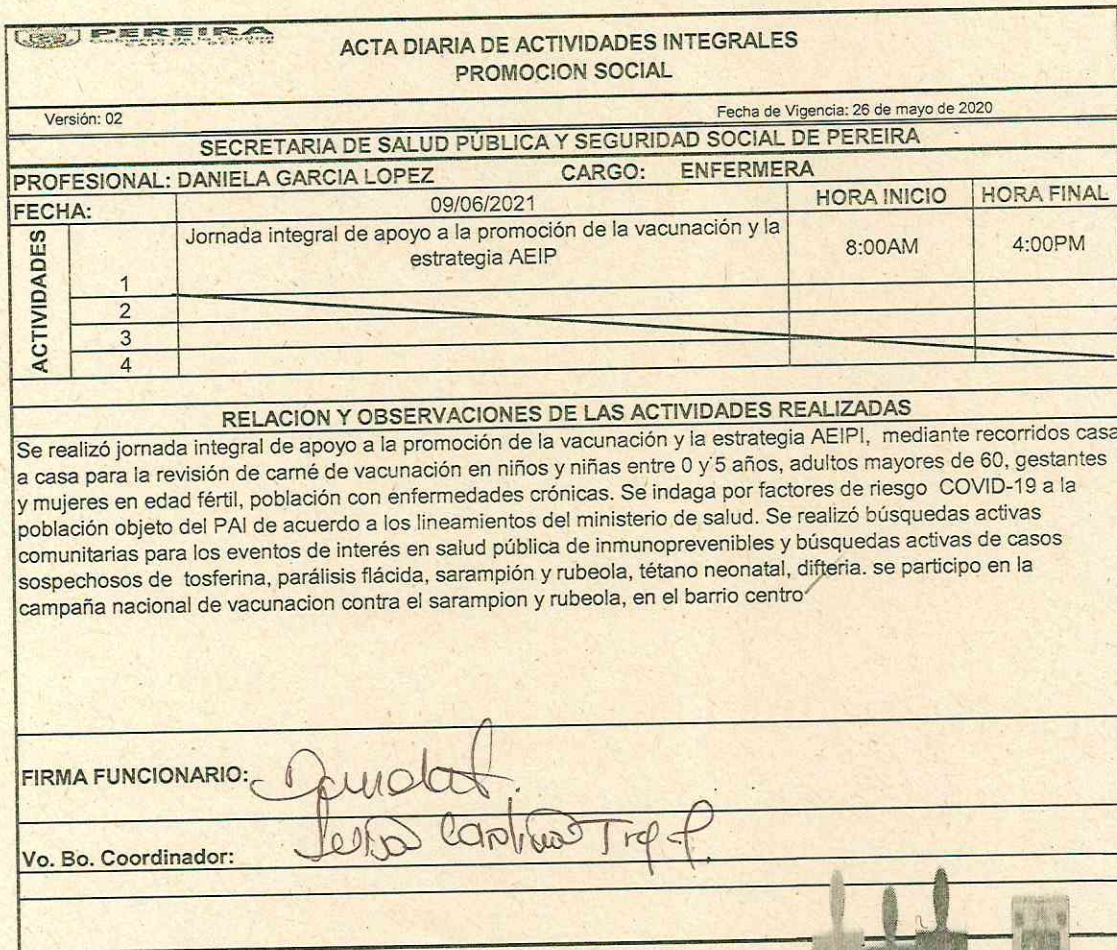 PEREIRA
ACTA DIARIA DE ACTIVIDADES INTEGRALES
PROMOCION SOCIAL
Versión: 02 Fecha de Vigencia: 26 de mayo de 2020
SECRETARIA DE SALUD PÚBLICA Y SEGURIDAD SOCIAL DE PEREIRA
PROFESIONAL: DANIELA GARCIA LOPEZ CARGO: ENFERMERA
FECHA: 09/06/2021 HORA INICIO HORA FINAL
ACTIVIDADES
1 Jornada integral de apoyo a la promoción de la vacunación y la
estrategia AEIP 8:00AM 4:00PM
2
3
4
RELACION Y OBSERVACIONES DE LAS ACTIVIDADES REALIZADAS
Se realizó jornada integral de apoyo a la promoción de la vacunación y la estrategia AEIPI, mediante recorridos casa
a casa para la revisión de carné de vacunación en niños y niñas entre 0 y 5 años, adultos mayores de 60, gestantes
y mujeres en edad fértil, población con enfermedades crónicas. Se indaga por factores de riesgo COVID-19 a la
población objeto del PAI de acuerdo a los lineamientos del ministerio de salud. Se realizó búsquedas activas
comunitarias para los eventos de interés en salud pública de inmunoprevenibles y búsquedas activas de casos
sospechosos de tosferina, parálisis flácida, sarampión y rubeola, tétano neonatal, difteria. se participo en la
campaña nacional de vacunacion contra el sarampion y rubeola, en el barrio centro
FIRMA FUNCIONARIO:
Vo. Bo. Coordinador: